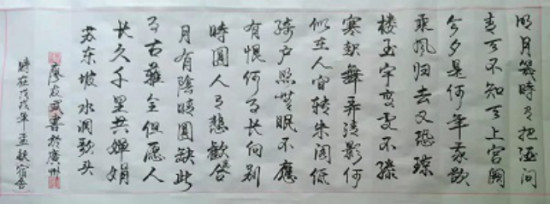 明月幾時有把酒问
青天不知天上宫闕
今夕是何年我欲
乘风归去又恐琼
楼玉宇高處不勝
寒起舞弄清影何
似在人间转朱阁低
绮户照無眠不應
有恨何事长向别
時圆人有悲歡离合
月有陰晴圆缺此
事古難全但愿人
长久千里共嬋娟
苏东坡水调歌头
廖友武書於廣州
時在戊戌年孟秋